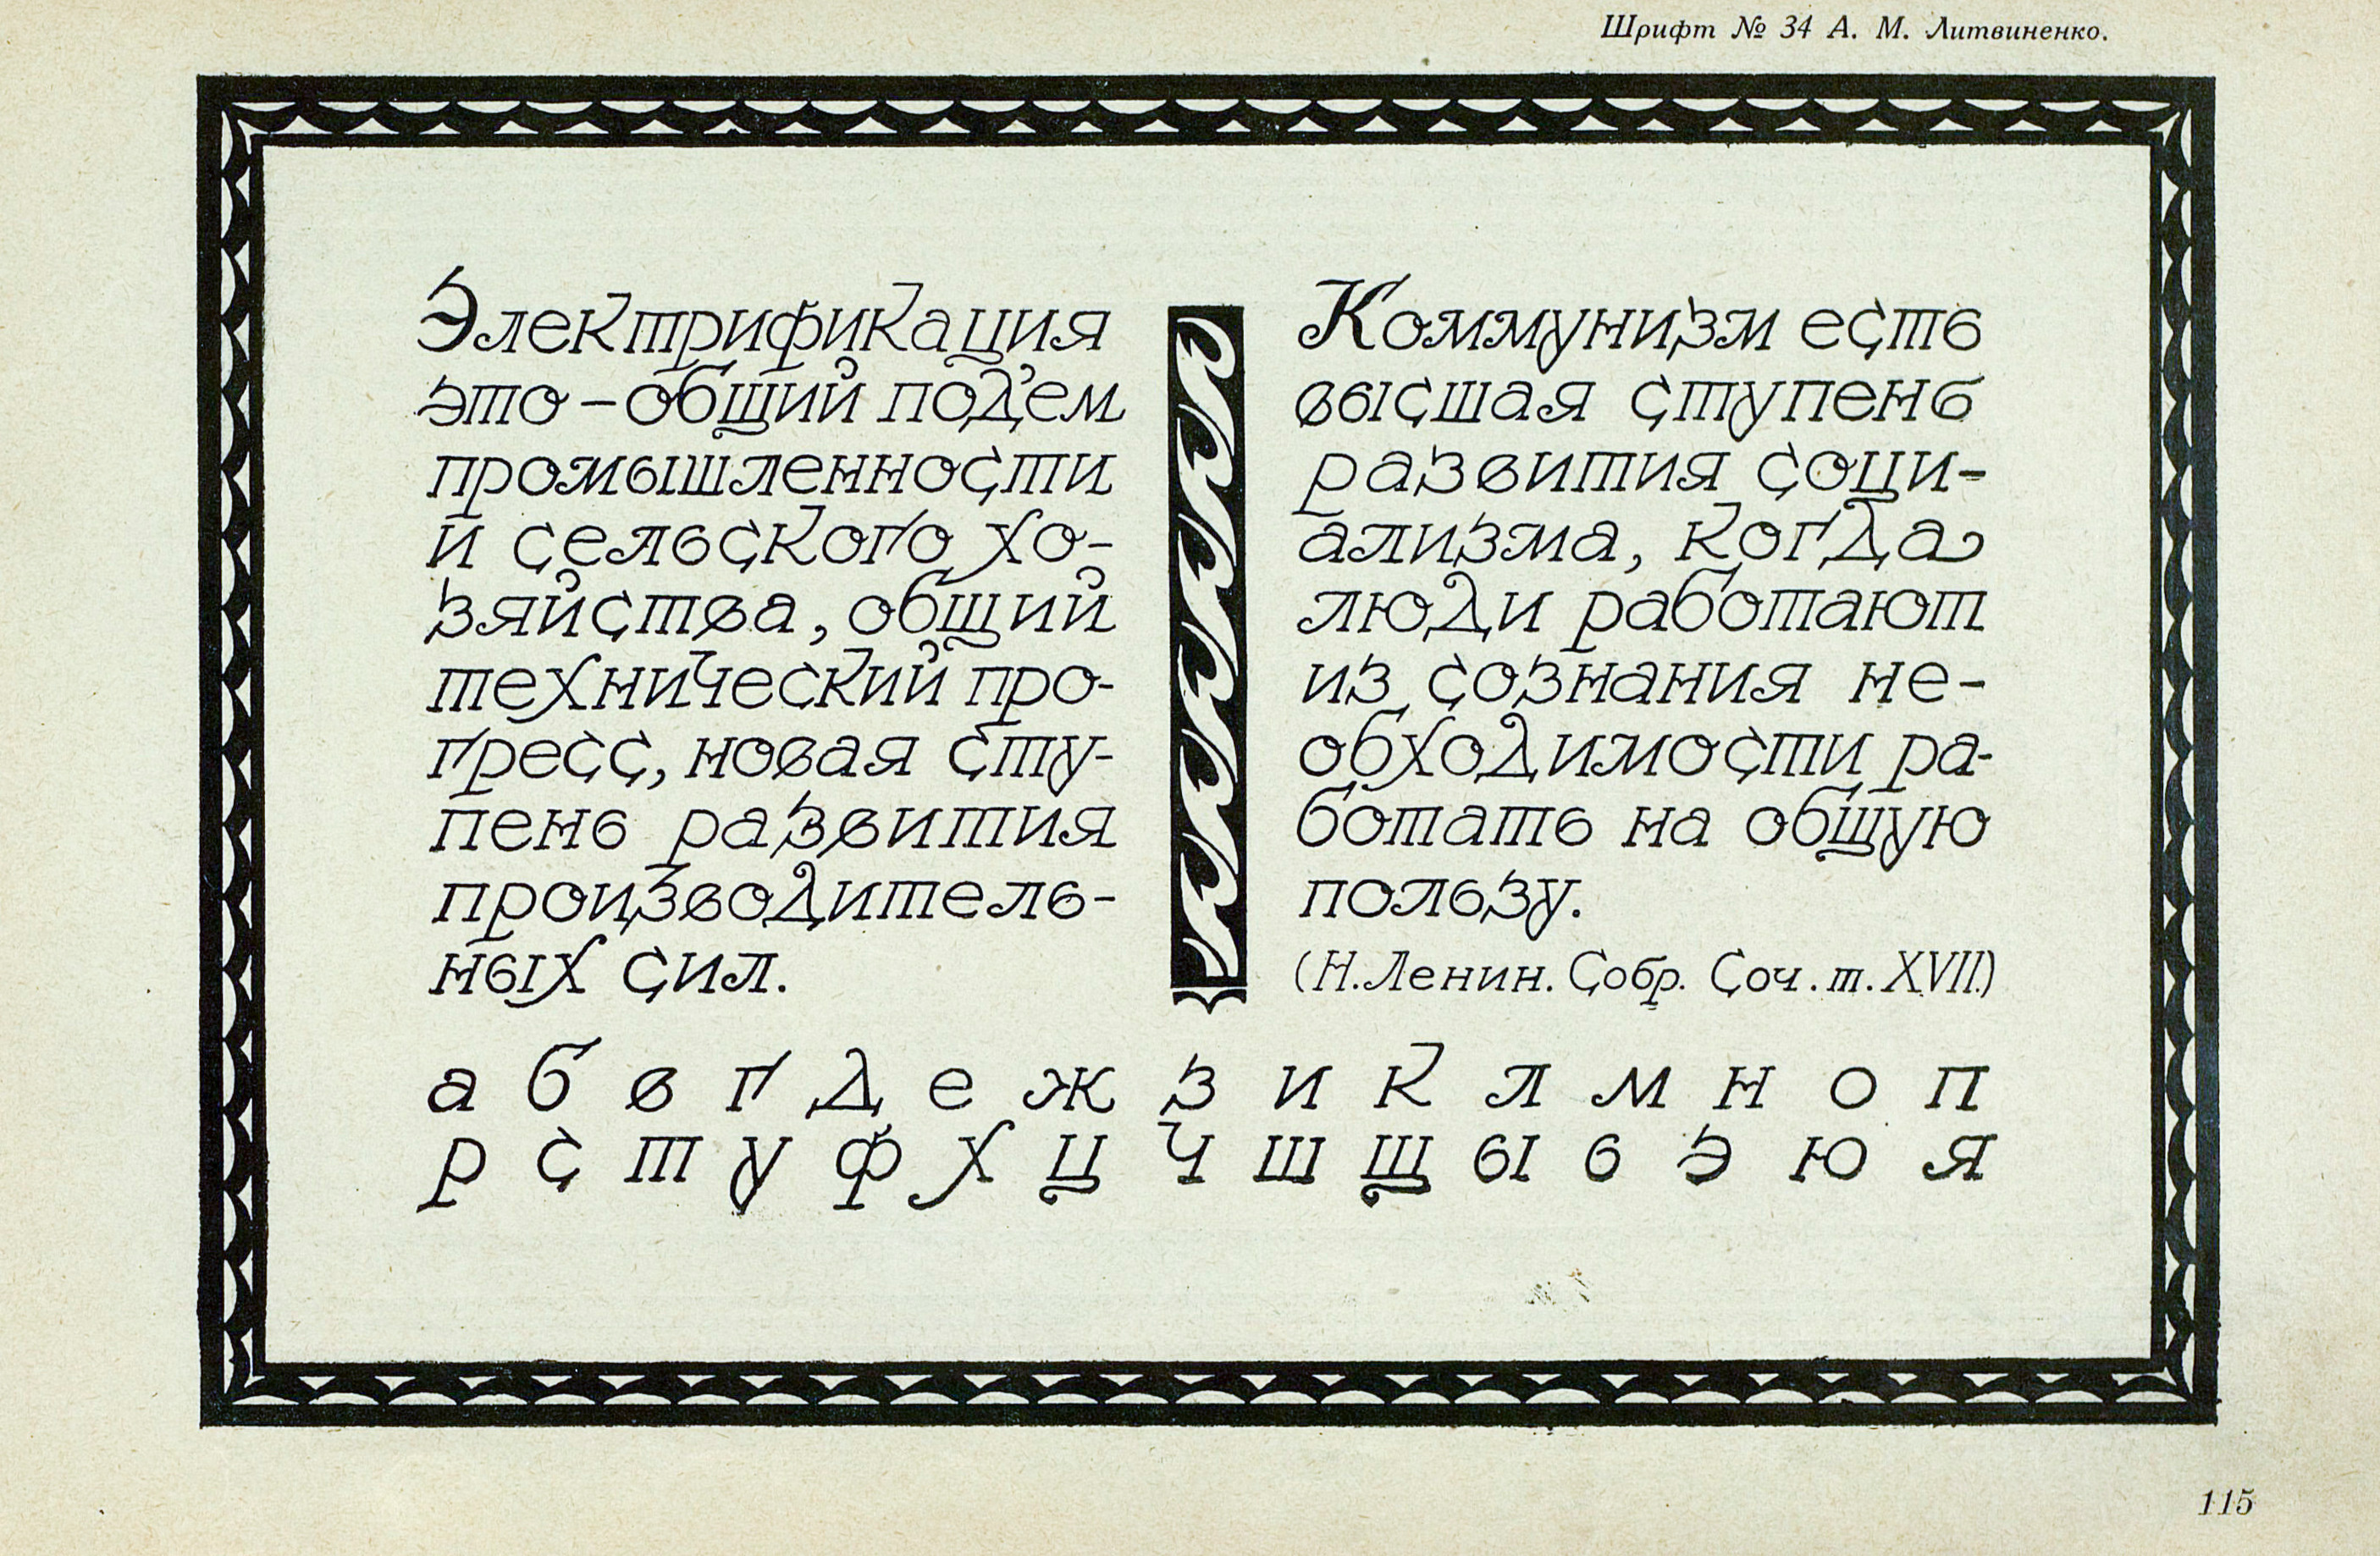 Шрифт № 34 А. М. Литвиненко.
Электрификация
это – общий под'ем
промышленности
и сельского хо-
зяйства, общий
технический про-
гресс, новая сту-
пень развития
производитель-
ных сил.
Коммунизм есть
высшая ступень
развития соци-
ализма, когда
люди работают
из сознания не-
обходимости ра-
ботать на общую
пользу.
(Н. Ленин. Собр. Соч. т. XVII.)
а б в г д е ж з и к л м н о п
р с т у ф х ц ч ш щ ы ь э ю я
115